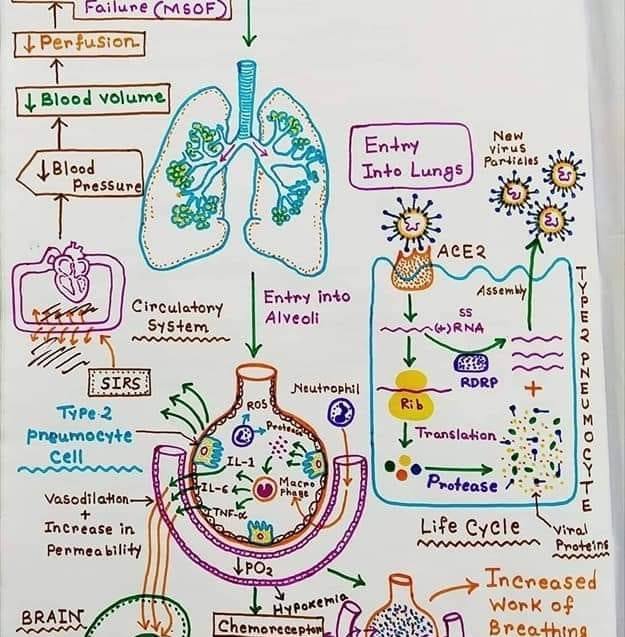 Failure (MSOF)
↓ Perfusion
↓ Blood volume
↓ Blood
Pressure
Circulatory
System
SIRS
Entry
Into Lungs
New
virus
Particles
ACE2
Assembly
SS
(+)RNA
RDRP
+
Rib
Translation
Protease
Life Cycle
Viral
Proteins
TYPE 2 PNEUMOCYTE
Entry into
Alveoli
Neutrophil
ROS
Protease
IL-1
IL-6
TNF-α
Macro
phage
Type-2
pneumocyte
Cell
Vasodilation
+
Increase in
Permeability
↓PO2
Hypoxemia
Chemoreceptor
BRAIN
Increased
Work of
Breathing